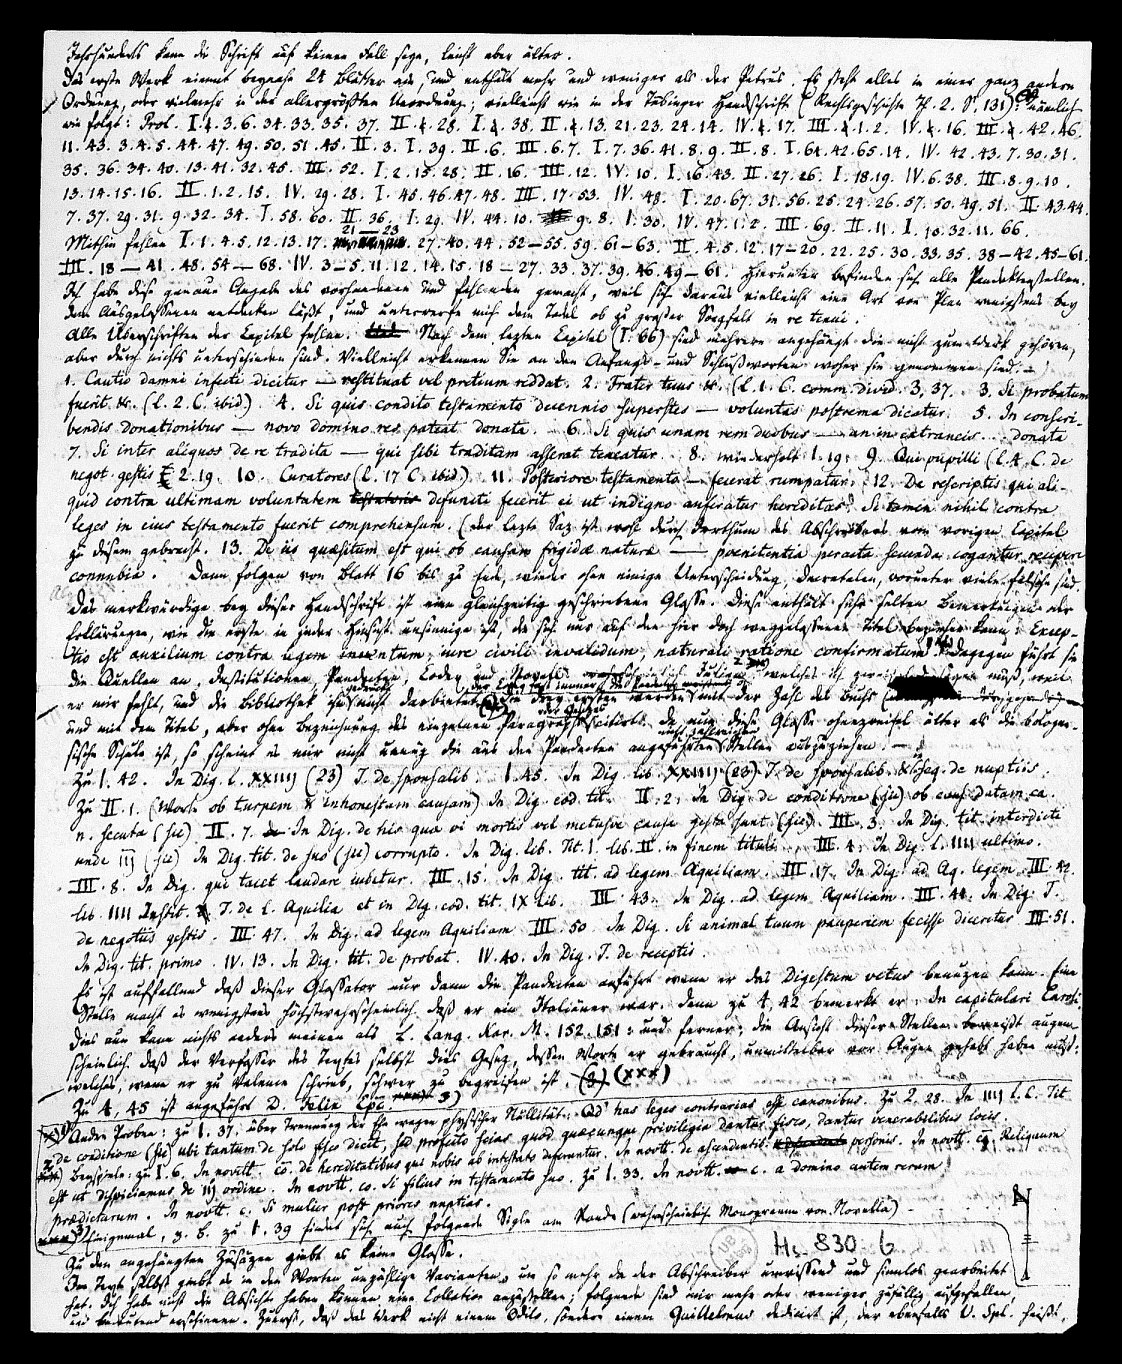 Jahrhunderts kann die Schrift auf keinen Fall seyn, leicht aber älter.
Das erste Werk nimmt beynahe 24 Blätter ein, und enthält mehr und weniger als der Petrus. Es steht alles in einer ganz andern
Ordnung, oder vielmehr in der allergrößten Unordnung; vielleicht wie in der Tübinger Handschrift (Rechtsgeschichte Th. 2. S. 131): nämlich
wie folgt: Prol. I. 3. 6. 34. 33. 35. 37. II. 28. I. 38. II. 13. 21. 23. 24. 14. IV. 17. III. 1. 2. IV. 16. III. 42. 46.
11. 43. 3. 4. 5. 44. 47. 49. 50. 51. 45. II. 3. I. 39. II. 6. III. 6. 7. I. 7. 36. 41. 8. 9. II. 8. I. 64. 42. 65. 14. IV. 42. 43. 7. 30. 31.
35. 36. 34. 40. 13. 41. 32. 45. III. 52. I. 2. 15. 28. II. 16. III. 12. IV. 10. I. 16. 43. II. 27. 26. I. 18. 19. IV. 6. 38. III. 8. 9. 10.
13. 14. 15. 16. II. 1. 2. 15. IV. 29. 28. I. 45. 46. 47. 48. III. 17. 53. IV. 48. I. 20. 67. 31. 56. 25. 24. 26. 57. 50. 49. 51. II. 43. 44.
7. 37. 29. 31. 9. 32. 34. I. 58. 60. II. 36. I. 29. IV. 44. 10. 9. 8. I. 30. IV. 47. 1. 2. III. 69. II. 11. I. 10. 32. 11. 66.
Mithin fehlen I. 1. 4. 5. 12. 13. 17. 21—23 27. 40. 44. 52—55. 59. 61—63. II. 4. 5. 12. 17—20. 22. 25. 30. 33. 35. 38—42. 45—61.
III. 18—41. 48. 54—68. IV. 3—5. 11. 12. 14. 15. 18—27. 33. 37. 39. 46. 49—61. Hierunter befinden sich alle Pandektenstellen.
Ich habe diese genaue Angabe des vorhandenen und fehlenden gemacht, weil sich daraus vielleicht eine Art von Plan wenigstens bey
dem Ausgelassenen entdecken läßt, und unterwerfe mich dem Tadel ob zu großer Sorgfalt in re tenui.
Alle Überschriften der Capitel fehlen. Nach dem lezten Capitel (I. 66) sind mehrere angehängt die nicht zum Werk gehören,
aber durch nichts unterschieden sind. Vielleicht erkennen Sie an den Anfangs- und Schlußworten woher sie genommen sind. —
1. Cautio damni infecti dicitur — restituat vel pretium reddat. 2. Frater tuus &c. (l. 1. C. comm. divid. 3, 37. 3. Si probatum
fuerit &c. (l. 2. C. ibid.) 4. Si quis condito testamento decennio superstes — voluntas postrema dicatur. 5. In conscri-
bendis donationibus — novo domino res pateat donata. — 6. Si quis unam rem duobus — an in extraneis donata
7. Si inter aliquos de re tradita — qui sibi traditam asserat teneatur. 8. wiederholt I. 19. 9. Qui pupilli (l. 4. C. de
negot. gestis 2. 19. 10. Curatores (l. 17 C. ibid.) 11. Posteriore testamento — fecerat rumpatur. 12. De rescriptis qui ali-
quid contra ultimam voluntatem defuncti fecerit ei ut indigno auferatur hereditas. Si tamen nihil contra
leges in eius testamento fuerit comprehensum. (der lezte Saz ist wohl durch Irrthum des Abschreibers vom vorigen Capitel
zu diesem gebracht. 13. De iis quæsitum est qui ob causam frigidæ naturæ — poenitentia peracta secunda cogantur recipere
connubia. Dann folgen von Blatt 16 bis zu Ende, wieder ohne einige Unterscheidung, Decretalen, worunter viele falsche sind.
Das merkwürdige bey dieser Handschrift ist eine gleichzeitig geschriebene Glosse. Diese enthält sehr selten Bemerkungen oder
Erklärungen, wie die erste in jeder Hinsicht unsinnige ist, die sich nur auf den hier doch weggelassenen Titel beziehen kann: Excep-
tio est auxilium contra agem inventum, iure civili invalidum, naturali ratione confirmatum. Dagegen führt sie
die Quellen an, Institutionen, Pandecten, Codex und Novellen
er mir fehlt, und die Bibliothek ihn nicht darbietet
und mit dem Titel, aber ohne Bezeichnung des einzelnen Paragraphs citirt. Da nun diese Glosse ohnezweifel älter als die bologne-
sische Schule ist, so scheint es mir nicht unnüz die aus den Pandecten angeführten Stellen auszuziehen. —
Zu I. 42. In Dig. l. XXIIIJ (23) T. de sponsalib. I. 45. In Dig. lib. XXIIIJ (23) T. de sponsalib. & seq. de nuptiis.
Zu II. 1. (Worte ob turpem & inhonestam causam) In Dig. eod. tit. II. 2. In Dig. de conditione (sic) ob caus. datam ca.
n. secuta (sic) II. 7. In Dig. de his qua vi mortis vel metusve causa gesta sunt (sic). III. 3. In Dig. tit. interdicti
unde IIJ (sic) In Dig. tit. de suo (sic) corrupto. In Dig. lib. Tit. 1. lib. II. in finem tituli. III. 4. In Dig. l. IIII ultimo.
III. 8. In Dig. qui tacet laudare iubetur. III. 15. In Dig. tit. ad legem Aquiliam. III. 17. In Dig. ad Aq. legem. III. 42.
lib. IIII Instit. T. de l. Aquilia et in Dig. eod. tit. IX lib. III. 43. In Dig. ad legem Aquiliam. III. 44. In Dig. T.
de negotiis gestis. III. 47. In Dig. ad legem Aquiliam. III. 50. In Dig. Si animal tuum pauperiem fecisse dicetur III. 51.
In Dig. tit. primo. IV. 13. In Dig. tit. de probat. IV. 40. In Dig. T. de receptis.
Es ist auffallend daß dieser Glossator nur dann die Pandecten anführt wenn er das Digestum vetus benuzen kann. Eine
Stelle macht es wenigstens höchstwahrscheinlich daß er ein Italiäner war. Denn zu I, 42 bemerkt er: In capitulari Caroli.
Dies nun kann nichts anders meinen als L. Lang. Kar. M. 152. 151: und ferner: die Ansicht dieser Stellen beweißt augen-
scheinlich daß der Verfasser des Textes selbst dies Gesez, dessen Worte er gebraucht, unmittelbar vor Augen gehabt haben muß:
welches, wenn er zu Valence schrieb, schwer zu begreifen ist. (XXX)
Zu I, 45 ist angeführt D. Felix Epc. 3)
Andre Proben: zu I. 37. über Trennung der Ehe wegen physischer Nullität: Ad has leges contrarias esse canonibus. Zu 2. 28. In IIIJ l. C. Tit
de conditione (sic) ubi tantum de solo fisco dicit, sed profecto scias quod quæcunque privilegia dantur fisco, dantur venerabilibus locis.
Beyspiele: zu I. 6. In novell. co. de hereditatibus que nobis ab intestatis deferuntur. In novll. de ascendentib. personis. In novll. cō. Reliquum
est ut dispiciamus de IIJ ordine. In novll. co. Si filius in testamento suo. Zu I. 33. In novll. c. a domino autem rerum
prædictarum. In novll. c. Si mulier post priores nuptias.
Einigemal, z. B. zu I. 39 findet sich auch folgende Sigle am Rande (wahrscheinlich Monogramm von Novella)
Hs. 830 6
Zu den angehängten Zusäzen giebt es keine Glosse.
Im Text selbst giebt es in den Worten unzählige Varianten, um so mehr da der Abschreiber unwissend und sinnlos gearbeitet
hat. Ich habe nicht die Absicht haben können eine Collation anzustellen; folgende sind mir mehr oder weniger zufällig aufgefallen,
und bedeutend erschienen. Zuerst, daß das Werk nicht einem Odilo, sondern einem Guillelmus dedicirt ist, der ebenfalls V. Spl. heißt,